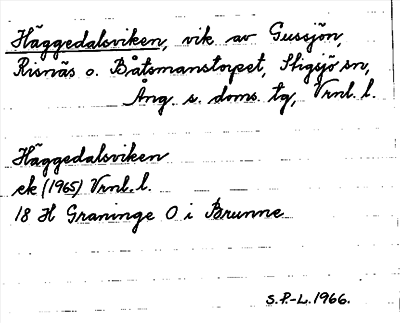 Häggedalsviken, vik av Gussjön,
Risnäs o. Båtsmanstorpet, Stigsjö sn,
Ång. s. doms. tg, Vrnl. l.
Häggedalsviken
ek (1965) Vrnl. l.
18 H Graninge O i Brunne
S.P.-L. 1966.